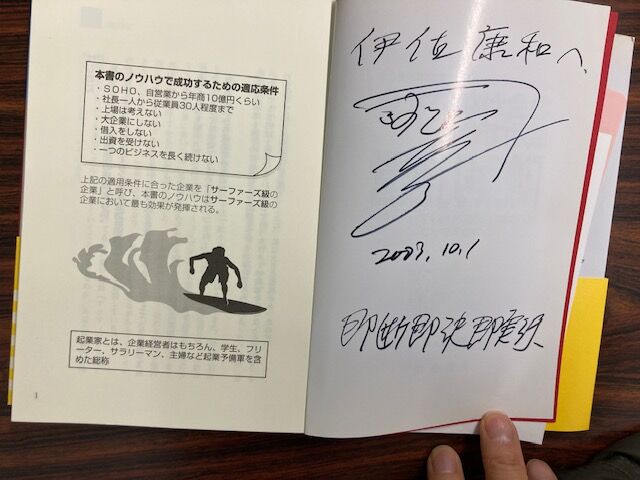 本書のノウハウで成功するための適応条件
・SOHO、自営業から年商10億円くらい
・社長一人から従業員30人程度まで
・上場は考えない
・大企業にしない
・借入をしない
・出資を受けない
・一つのビジネスを長く続けない
上記の適用条件に合った企業を「サーファーズ級の
企業」と呼び、本書のノウハウはサーファーズ級の
企業において最も効果が発揮される。
起業家とは、企業経営者はもちろん、学生、フリ
ーター、サラリーマン、主婦など起業予備軍を含
めた総称
1
伊佐康和へ
2003.10.1
即断即決即実行